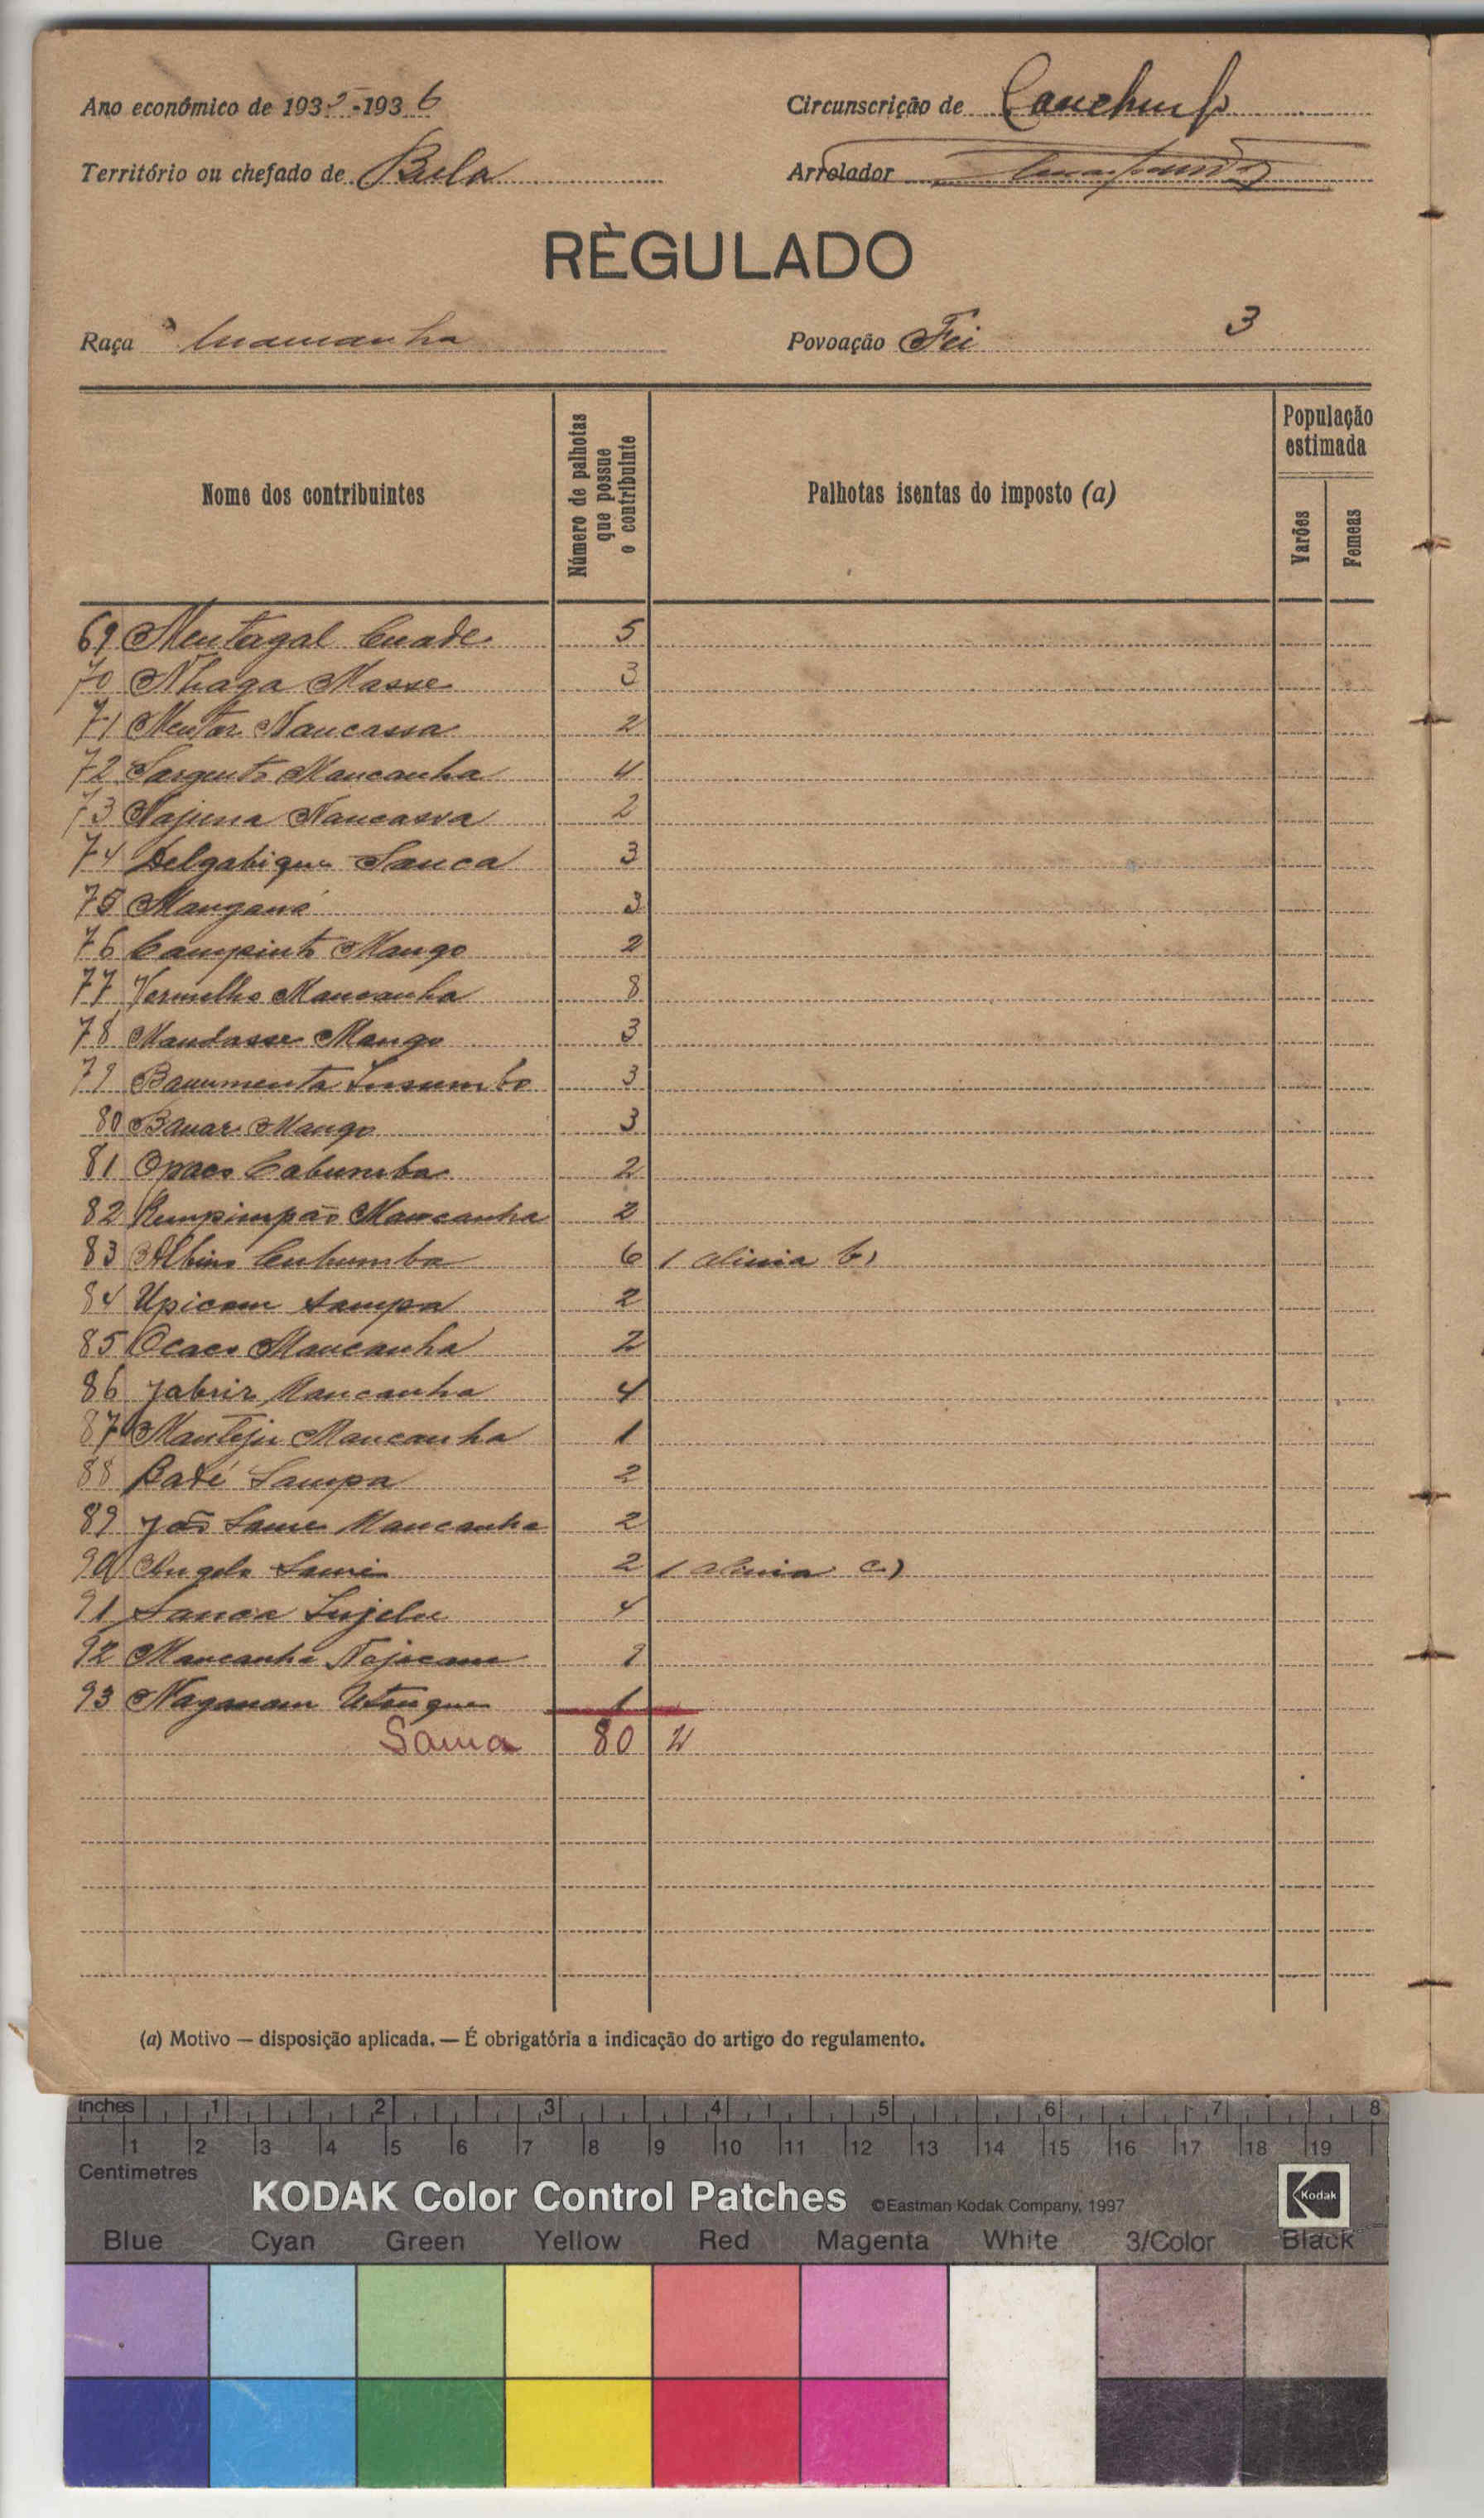 Ano económico de 1935-1936
Circunscrição de Canchungo
Território ou chefado de Bula
Arrolador
RÈGULADO
Raça Mamanha
Povoação Fei 3
Nome dos contribuintes
Número de palhotas que possue o contribuinte
Palhotas isentas do imposto (a)
População estimada
Varões
Femeas
69 Mentagal Cuade 5
70 Nhaga Nasse 3
71 Mentar Naucassa 2
72 Sargento Mancanha 4
73 Najuna Naucassa 2
74 Delgabique Sanca 3
75 Mangané 3
76 Campinto Mango 2
77 Vermelho Mancanha 8
78 Mandasse Mango 3
79 3
80 Banar Mango 3
81 Opaco Cabumba 2
82 Mancanha 2
83 Albino Cubumba 6 1 alinia b)
84 Upicam Sampa 2
85 Ocaco Mancanha 2
86 Jabriz Mancanha 4
87 Manteju Mancanha 1
88 Badé Sampa 2
89 João Same Mancanha 2
90 Angelo Samé 2 1 alinia c)
91 Sanca 4
92 Mancanha
93 1
Soma 80 2
(a) Motivo — disposição aplicada. — É obrigatória a indicação do artigo do regulamento.
Inches 1 2 3 4 5 6 7 8
1 2 3 4 5 6 7 8 9 10 11 12 13 14 15 16 17 18 19
Centimetres
KODAK Color Control Patches ©Eastman Kodak Company, 1997 Kodak
Blue Cyan Green Yellow Red Magenta White 3/Color Black